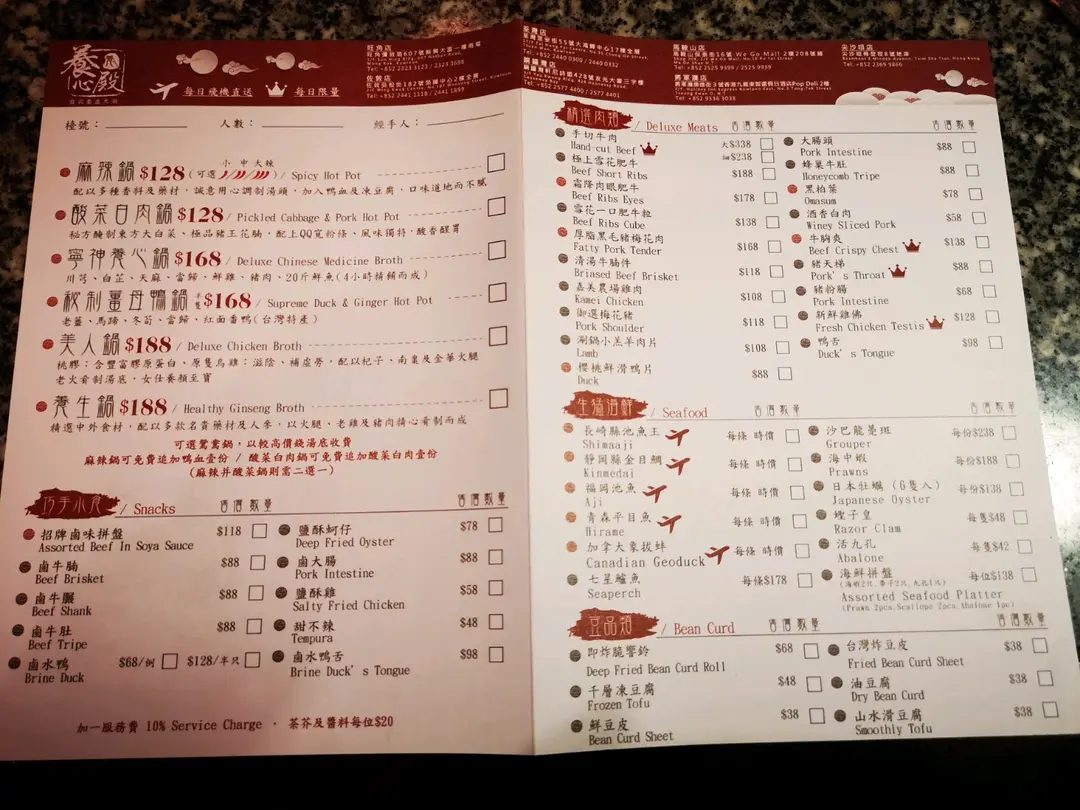 養心殿
台式養生火鍋
每日飛機直送
每日限量
旺角店
佐敦店
Tel: +852 2441 1118 / 2441 1899
荃灣店
Tel: +852 2440 0300 / 2440 0332
銅鑼灣店
Tel: +852 2577 4400 / 2577 4401
馬鞍山店
Tel: +852 2525 9399 / 2525 9939
將軍澳店
Tel: +852 9536 3038
尖沙咀店
Tel: +852 2369 9866
檯號：
人數：
經手人：
小 中 大辣
麻辣鍋 $128 (可選 ) / Spicy Hot Pot
配以多種香料及藥材，誠意用心調制湯頭，加入鴨血及凍豆腐，口味道地而不膩
酸菜白肉鍋 $128 / Pickled Cabbage & Pork Hot Pot
秘方醃制東方大白菜、極品豬王花腩，配上QQ寬粉條、風味獨特，酸香醒胃
寧神養心鍋 $168 / Deluxe Chinese Medicine Broth
川芎、白芷、天麻、當歸、鮮雞、豬肉、20斤鮮魚(4小時精鍊而成)
秘制薑母鴨鍋 半隻 $168 / Supreme Duck & Ginger Hot Pot
老薑、馬蹄、冬筍、當歸、紅面番鴨(台灣特產)
美人鍋 $188 / Deluxe Chicken Broth
桃膠：含豐富膠原蛋白、原隻烏雞：滋陰、補虛勞，配以杞子、南棗及金華火腿
老火肴制湯底，女仕養顏至寶
養生鍋 $188 / Healthy Ginseng Broth
精選中外食材，配以多款名貴藥材及人參，以火腿、老雞及豬肉精心肴制而成
可選鴛鴦鍋，以較高價錢湯底收費
麻辣鍋可免費追加鴨血壹份 / 酸菜白肉鍋可免費追加酸菜白肉壹份
(麻辣并酸菜鍋則需二選一)
巧手小食 / Snacks
招牌鹵味拼盤 $118
Assorted Beef In Soya Sauce
鹵牛腩 $88
Beef Brisket
鹵牛𦟌 $88
Beef Shank
鹵牛肚 $88
Beef Tripe
鹵水鴨 $68/例 $128/半只
Brine Duck
鹽酥蚵仔 $78
Deep Fried Oyster
鹵大腸 $88
Pork Intestine
鹽酥雞 $58
Salty Fried Chicken
甜不辣 $48
Tempura
鹵水鴨舌 $98
Brine Duck's Tongue
加一服務費 10% Service Charge · 茶芥及醬料每位$20
精選肉類 / Deluxe Meats
手切牛肉 大$338
Hand-cut Beef 細$238
極上雪花肥牛 $188
Beef Short Ribs
霜降肉眼肥牛 $178
Beef Ribs Eyes
雪花一口肥牛粒 $138
Beef Ribs Cube
厚脂黑毛豬梅花肉 $168
Fatty Pork Tender
清湯牛腩件 $118
Briased Beef Brisket
嘉美農場雞肉 $108
Kamei Chicken
御選梅花豬 $118
Pork Shoulder
涮鍋小羔羊肉片 $108
Lamb
櫻桃鮮滑鴨片 $88
Duck
大腸頭 $88
Pork Intestine
蜂巢牛肚 $88
Honeycomb Tripe
黑柏葉 $78
Omasum
酒香白肉 $58
Winey Sliced Pork
牛胸爽 $138
Beef Crispy Chest
豬天梯 $88
Pork's Throat
豬粉腸 $68
Pork Intestine
新鮮雞佛 $128
Fresh Chicken Testis
鴨舌 $98
Duck's Tongue
生猛海鮮 / Seafood
長崎縣池魚王 每條 時價
Shimaaji
靜岡縣金目鯛 每條 時價
Kinmedai
福岡池魚 每條 時價
Aji
青森平目魚 每條 時價
Hirame
加拿大象拔蚌 每條 時價
Canadian Geoduck
七星鱸魚 每條$178
Seaperch
沙巴龍躉斑 每份$238
Grouper
海中蝦 每份$188
Prawns
日本牡蠣 (6隻入) 每份$138
Japanese Oyster
蟶子皇 每隻$48
Razor Clam
活九孔 每隻$42
Abalone
海鮮拼盤 每位$138
(海蝦2只，帶子2只，九孔1只)
Assorted Seafood Platter
(Prawn 2pcs,Scallops 2pcs,Abalone 1pc)
豆品類 / Bean Curd
即炸脆響鈴 $68
Deep Fried Bean Curd Roll
千層凍豆腐 $48
Frozen Tofu
鮮豆皮 $38
Bean Curd Sheet
台灣炸豆皮 $38
Fried Bean Curd Sheet
油豆腐 $38
Dry Bean Curd
山水滑豆腐 $38
Smoothly Tofu